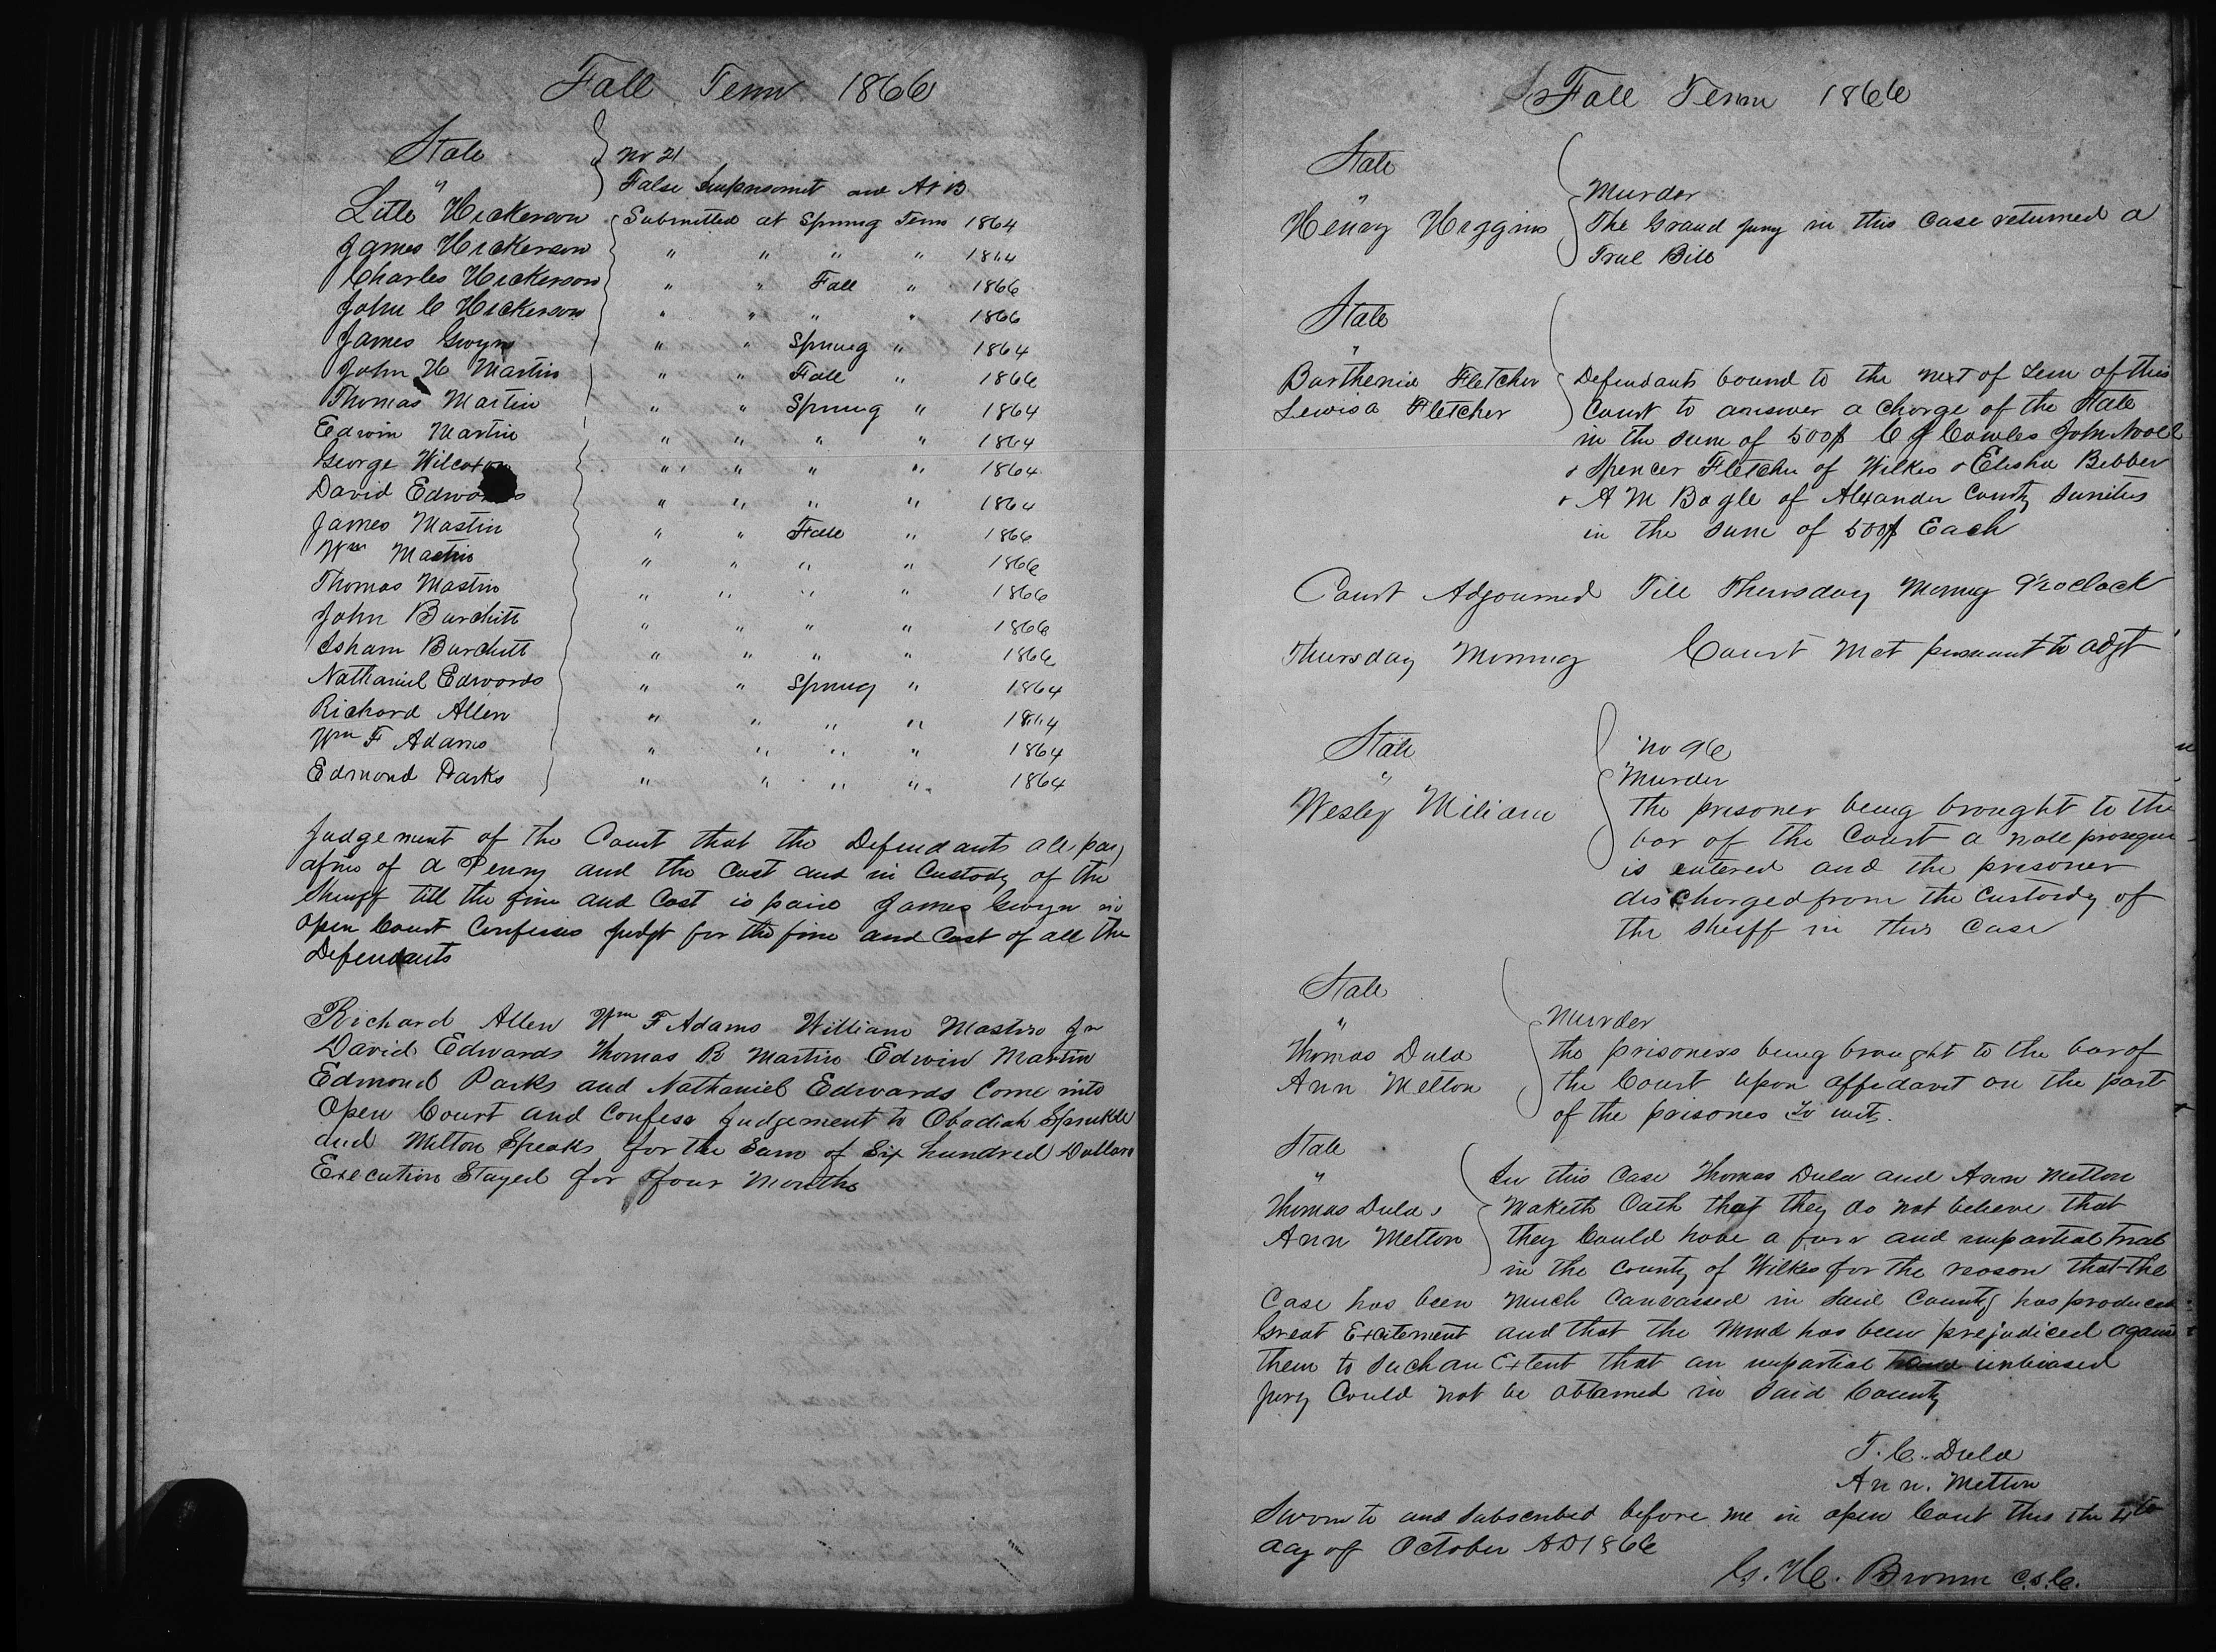 Fall Term 1866
State
"
No 21
False Imprisonmt and A & B
Little Hickerson Submitted at Spring Term 1864
James Hickerson " " " " 1864
Charles Hickerson " " Fall " 1866
John C Hickerson " " " " 1866
James Gwyn " " Spring " 1864
John H Martin " " Fall " 1866
Thomas Martin " " Spring " 1864
Edwin Martin " " " " 1864
George Wilcoxon " " " " 1864
David Edwards " " " " 1864
James Mastin " " Fall " 1866
Wm Mastin " " " " 1866
Thomas Mastin " " " " 1866
John Burchitt " " " " 1866
Isham Burchitt " " " " 1866
Nathaniel Edwards " " Spring " 1864
Richard Allen " " " " 1864
Wm F Adams " " " " 1864
Edmond Parks " " " " 1864
Judgement of the Court that the Defendants all pay
a fine of a Penny and the Cost and in Custody of the
Sheriff till the fine and Cost is paid James Gwyn in
open Court Confesses Judgt for the fine and Cost of all the
Defendants
Richard Allen Wm F Adams William Mastin Jr
David Edwards Thomas R Martin Edwin Martin
Edmond Parks and Nathaniel Edwards Come into
Open Court and Confess Judgement to Obadiah Sprinkle
and Milton Speaks for the Sum of Six hundred Dollars
Execution Stayed for four Months
Fall Term 1866
State
"
Henry Higgins
Murder
The Grand Jury in this Case returned a
True Bill
State
"
Barthenia Fletcher
Lewisa Fletcher
Defendants bound to the next of Term of this
Court to answer a charge of the State
in the sum of 500$ C J Cowles John
& Spencer Fletcher of Wilkes & Elisha Bebber
& A M Bogle of Alexander County Surities
in the sum of 500$ Each
Court Adjourned Till Thursday Morning oclock
Thursday Morning Court Met pursuant to adjt
State
"
Wesley Miliam
No 96
Murder
The prisoner being brought to the
bar of the Court a nolle prosequi
is entered and the prisoner
discharged from the Custody of
the Sheriff in this Case
State
"
Thomas Dula
Ann Melton
Murder
the prisoners being brought to the bar of
the Court upon affidavit on the part
of the prisones To wit.
State
"
Thomas Dula &
Ann Melton
In this Case Thomas Dula and Ann Melton
Maketh Oath that they do not believe that
they Could have a fair and impartial trial
in the County of Wilkes for the reason that the
Case has been Much Canvassed in Said County has produced
Great Excitement and that the Mind has been prejudiced against
them to such an Extent that an impartial unbiased
Jury Could not be obtained in Said County
T. C. Dula
Ann. Melton
Sworn to and subscribed before me in open Court this the 4th
day of October AD 1866
G. H. Brown C.S.C.